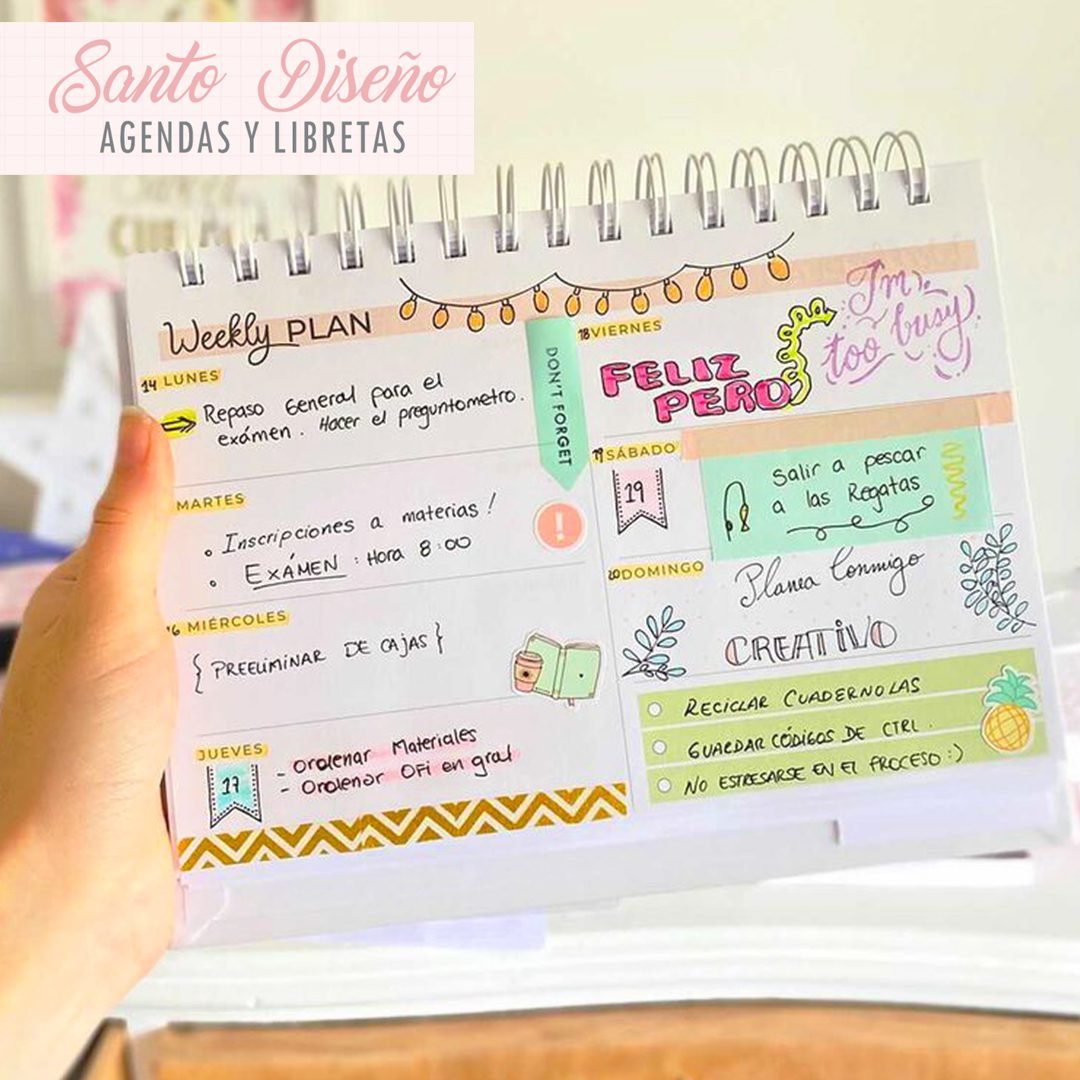 Santo Diseño
AGENDAS Y LIBRETAS
Weekly PLAN
14 LUNES
Repaso General para el
exámen. Hacer el preguntometro.
DON'T FORGET
MARTES
Inscripciones a materias!
EXÁMEN : Hora 8:00
!
16 MIÉRCOLES
{ PREELIMINAR DE CAJAS }
JUEVES
17
- Ordenar Materiales
- Ordenar OFi en gral
18 VIERNES
FELIZ
PERO
I'm
too busy.
19 SÁBADO
19
Salir a pescar
a las Regatas
20 DOMINGO
Planea Conmigo
CREATIVO
RECICLAR CUADERNOLAS
GUARDAR CÓDIGOS DE CTRL.
NO ESTRESARSE EN EL PROCESO :)